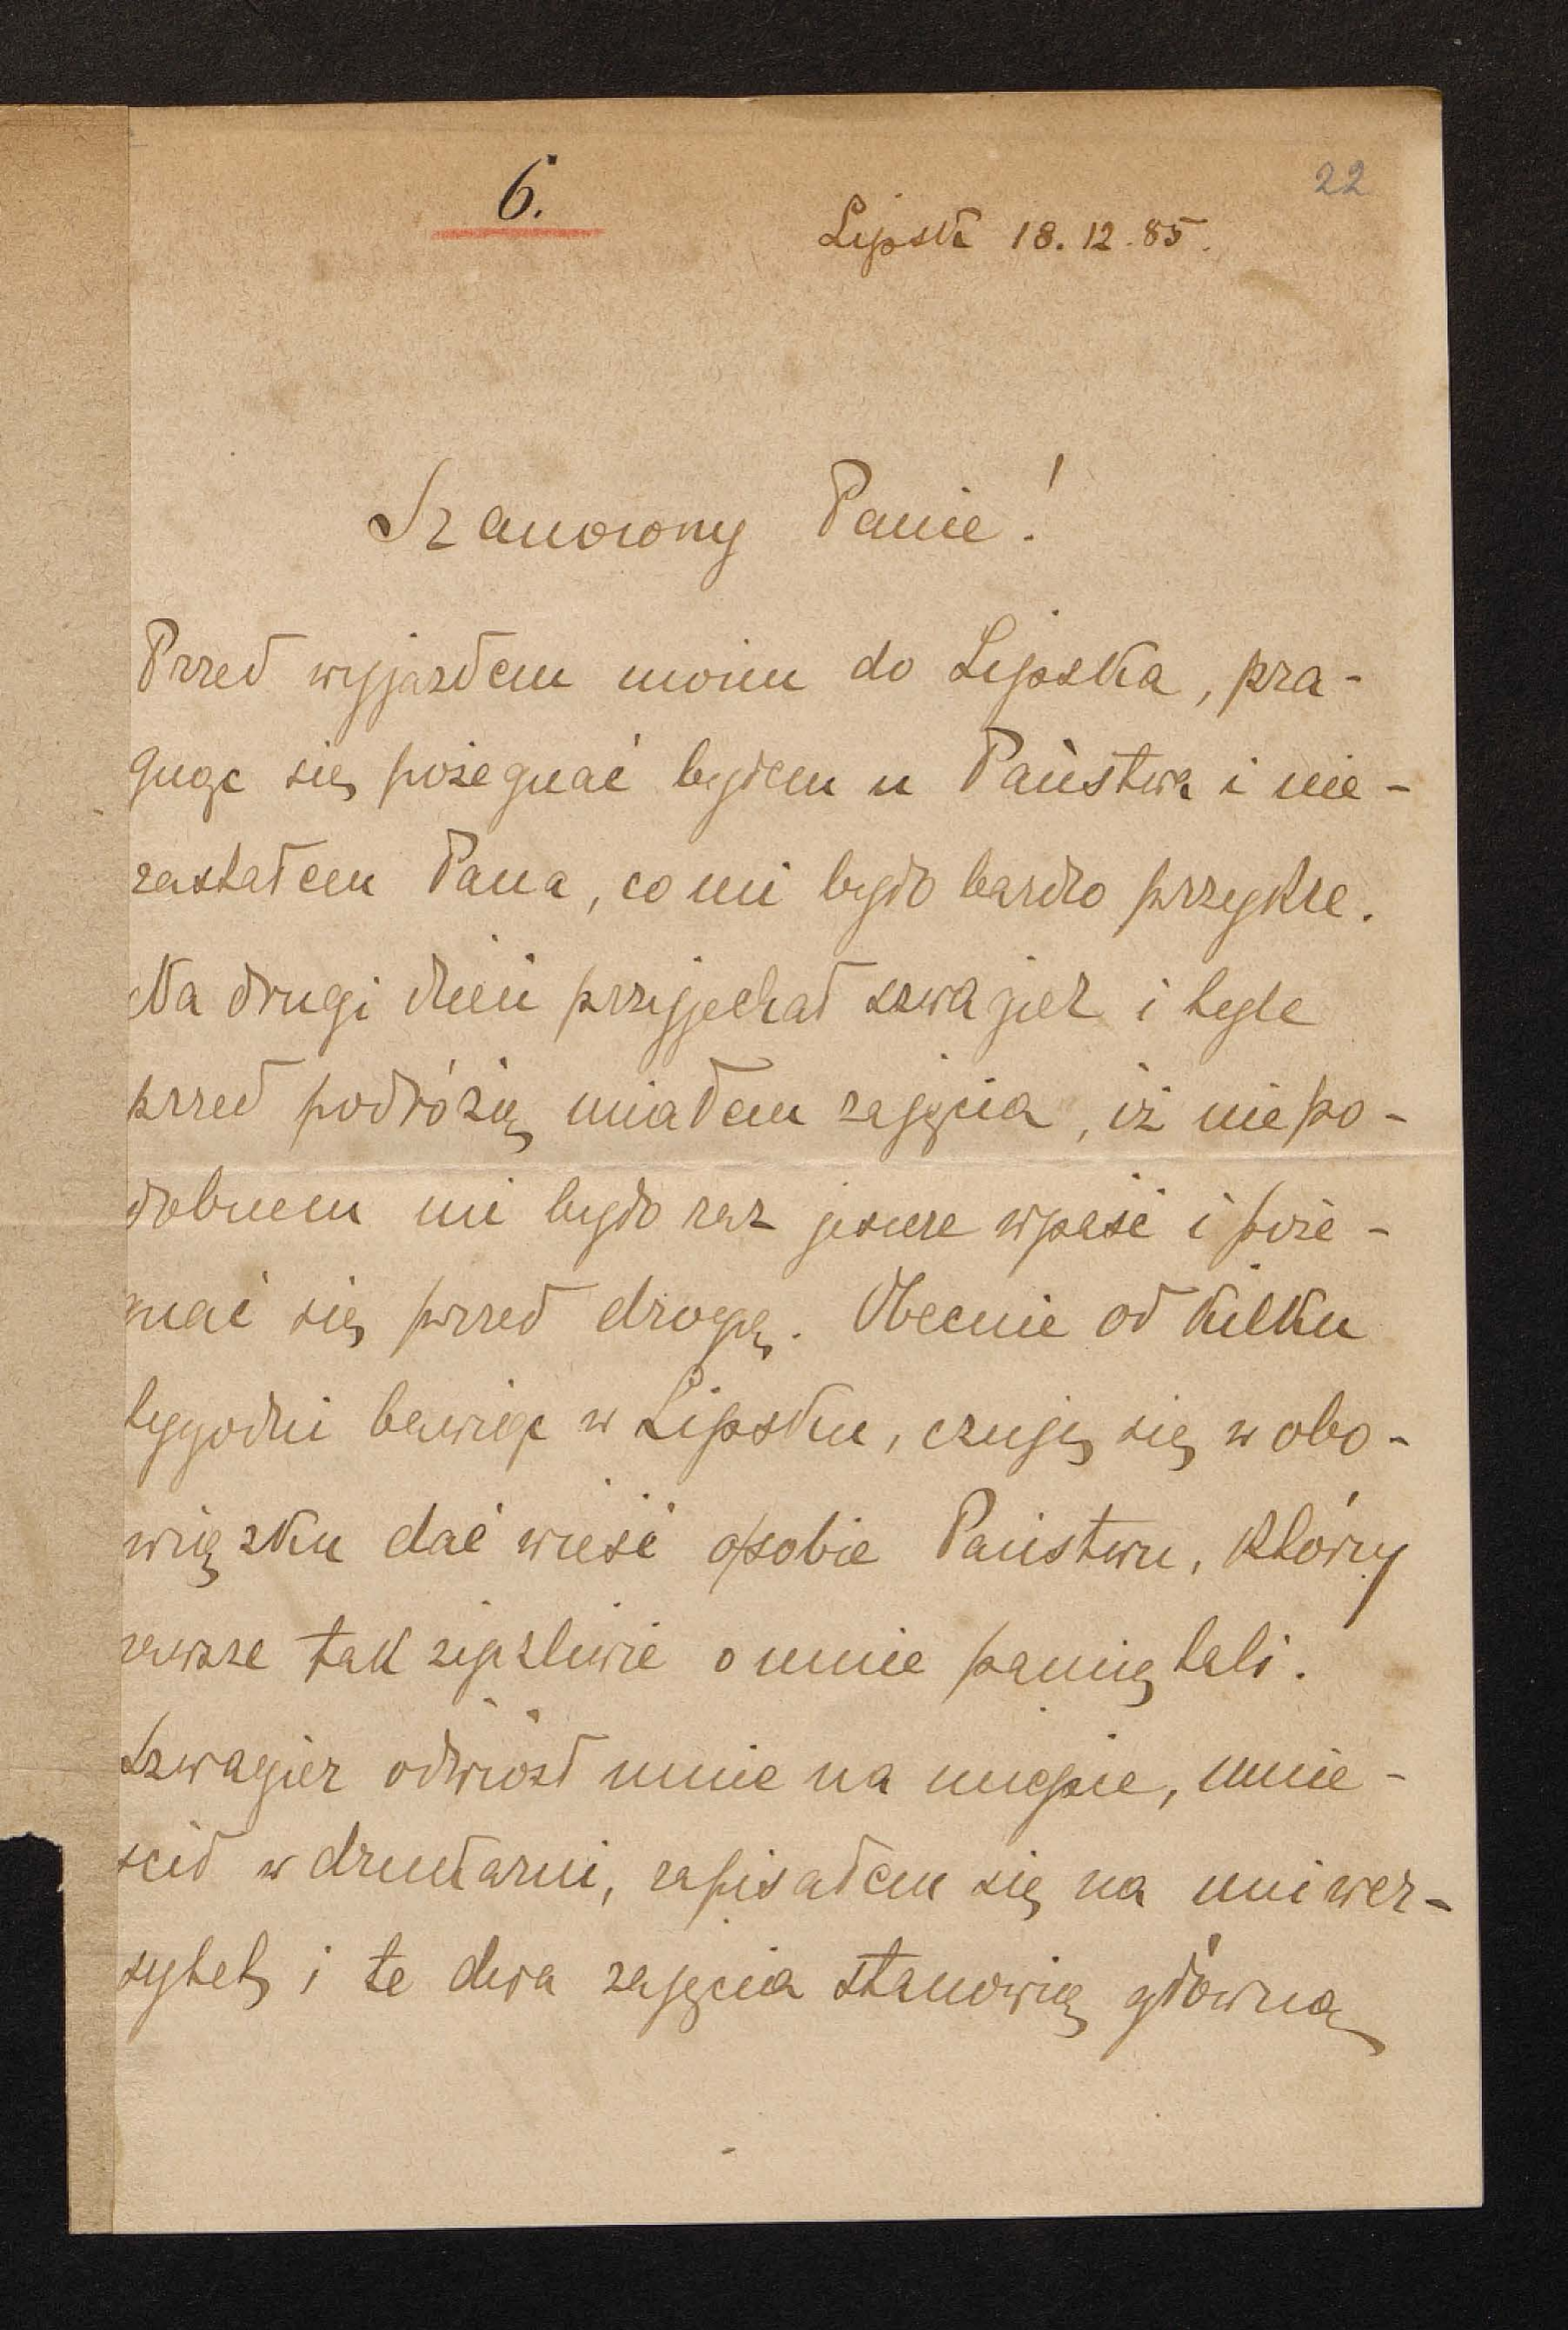 6.
22
Lipsk 18.12.85.
Szanowny Panie!
Przed wyjazdem moim do Lipska, pra-
gnąc się pożegnać byłem u Państwa i nie-
zastałem Pana, co mi było bardzo przykre.
Na drugi dzień przyjechał szwagier i tyle
przed podróżą miałem zajęcia, iż niepo-
dobnem mi było raz jeszcze wpaść i poże-
gnać się przed drogą. Obecnie od kilku
tygodni bawiąc w Lipsku, czuję się w obo-
wiązku dać wieść o sobie Państwu, którzy
zawsze tak życzliwie o mnie pamiętali.
Szwagier odwiózł mnie na miejsce, umie-
ścił w drukarni, zapisałem się na uniwer-
sytet, i te dwa zajęcia stanowią główną